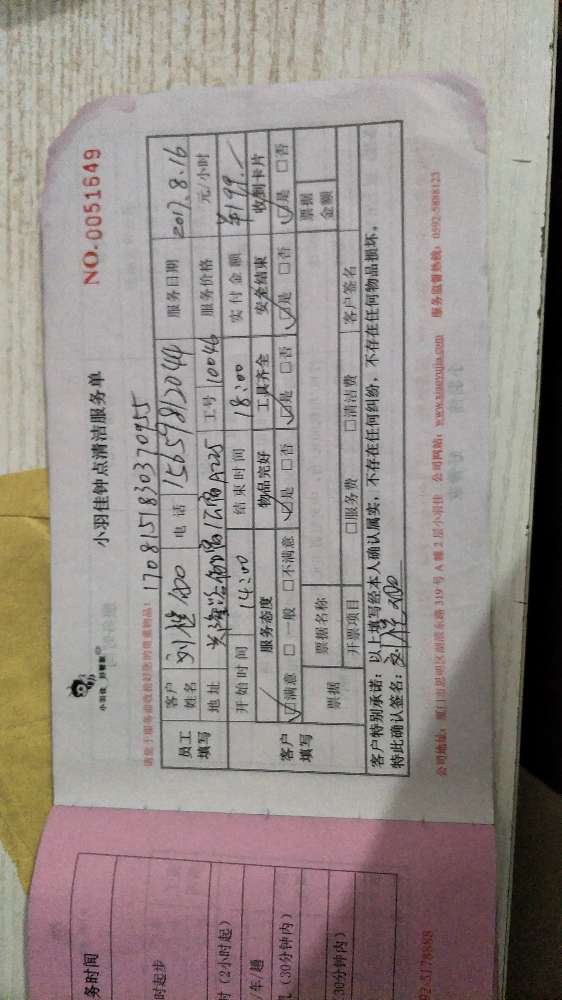 小羽佳 好管家
小羽佳钟点清洁服务单
NO.0051649
请您于服务前收拾好您的贵重物品!
1708151830370955
员工填写
客户姓名
电话 15659812044
服务日期 2017.8.16
地址
A225
工号 10046
服务价格 元/小时
开始时间 14:00
结束时间 18:00
实付金额 ¥199.-
客户填写
服务态度 物品完好 工具齐全 安全结束 收到卡片
☑满意 □一般 □不满意 ☑是 □否 ☑是 □否 ☑是 □否 ☑是 □否
票据
票据名称
票据金额
开票项目 □服务费 □清洁费 客户签名
客户特别承诺:以上填写经本人确认属实,不存在任何纠纷,不存在任何物品损坏。
特此确认签名:
公司地址:厦门市思明区湖滨东路319号A幢2层小羽佳 公司网站:www.xiaoyujia.com 服务监督热线:0592-5808123
务时间
时起步
时(2小时起)
/车/趟
(30分钟内)
30分钟内)
92-5178888